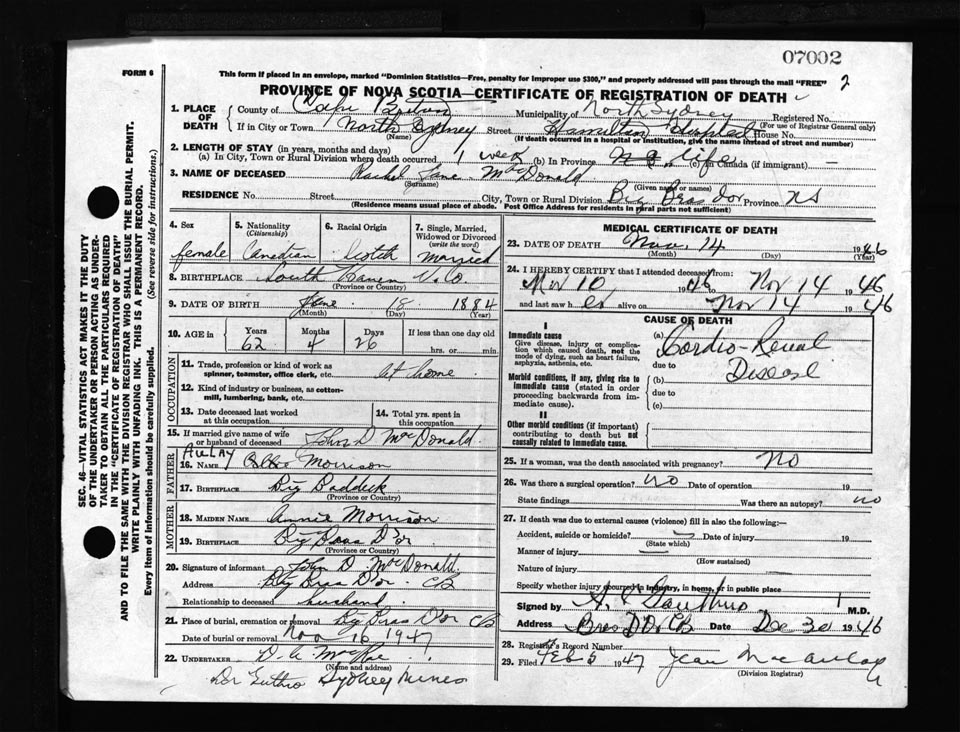 07002
FORM 6
This form if placed in an envelope, marked "Dominion Statistics—Free, penalty for improper use $300," and properly addressed will pass through the mail "FREE" 2
PROVINCE OF NOVA SCOTIA—CERTIFICATE OF REGISTRATION OF DEATH
1. PLACE OF DEATH
County of Cape Breton Municipality of North Sydney Registered No.
(For use of Registrar General only)
If in City or Town North Sydney Street Hamilton Hospital House No.
(Name) (If death occurred in a hospital or institution, give the name instead of street and number)
2. LENGTH OF STAY (in years, months and days)
(a) In City, Town or Rural Division where death occurred 1 week (b) In Province life (c) In Canada (if immigrant) —
3. NAME OF DECEASED Rachel Jane MacDonald
(Surname) (Given name or names)
RESIDENCE No. Street City, Town or Rural Division Big Bras dor Province NS
(Residence means usual place of abode. Post Office Address for residents in rural parts not sufficient)
4. Sex female
5. Nationality (Citizenship) Canadian
6. Racial Origin Scotch
7. Single, Married, Widowed or Divorced (write the word) married
8. BIRTHPLACE South Haven V. Co.
(Province or Country)
9. DATE OF BIRTH June 18 1884
(Month) (Day) (Year)
10. AGE in Years 62 Months 4 Days 26 If less than one day old hrs. or min.
OCCUPATION
11. Trade, profession or kind of work as spinner, teamster, office clerk, etc. at home
12. Kind of industry or business, as cotton-mill, lumbering, bank, etc.
13. Date deceased last worked at this occupation
14. Total yrs. spent in this occupation
15. If married give name of wife or husband of deceased John D MacDonald
FATHER
AULAY
16. NAME Morrison
17. BIRTHPLACE Big Baddeck
(Province or Country)
MOTHER
18. MAIDEN NAME Annie Morrison
19. BIRTHPLACE Big Bras D'or
(Province or Country)
20. Signature of informant John D. MacDonald
Address Big Bras D'or. CB
Relationship to deceased husband.
21. Place of burial, cremation or removal Big Bras D'or CB
Date of burial or removal Nov 16 1947
22. UNDERTAKER D. A. MacRae
(Name and address)
Dr Guthro Sydney Mines
MEDICAL CERTIFICATE OF DEATH
23. DATE OF DEATH Nov. 14 1946
(Month) (Day) (Year)
24. I HEREBY CERTIFY that I attended deceased from:
Nov 10 1946 to Nov 14 1946
and last saw her alive on Nov 14 1946
CAUSE OF DEATH
I
Immediate cause
Give disease, injury or complication which caused death, not the mode of dying, such as heart failure, asphyxia, asthenia, etc.
(a) Cardio-Renal
due to Disease
Morbid conditions, if any, giving rise to immediate cause (stated in order proceeding backwards from immediate cause).
(b)
due to
(c)
II
Other morbid conditions (if important) contributing to death but not causally related to immediate cause.
25. If a woman, was the death associated with pregnancy? NO
26. Was there a surgical operation? NO Date of operation 19
State findings Was there an autopsy? no
27. If death was due to external causes (violence) fill in also the following:—
Accident, suicide or homicide? Date of injury 19
(State which)
Manner of injury
(How sustained)
Nature of injury
Specify whether injury occurred in industry, in home, or in public place
Signed by M.D.
Address Bras D'Or CB Date Dec 30 1946
28. Registrar's Record Number
29. Filed Feb 5 1947 Jean MacAulay
(Division Registrar)
SEC. 46—VITAL STATISTICS ACT MAKES IT THE DUTY
OF THE UNDERTAKER OR PERSON ACTING AS UNDER-
TAKER TO OBTAIN ALL THE PARTICULARS REQUIRED
IN THE "CERTIFICATE OF REGISTRATION OF DEATH"
AND TO FILE THE SAME WITH THE DIVISION REGISTRAR WHO SHALL ISSUE THE BURIAL PERMIT.
WRITE PLAINLY WITH UNFADING INK. THIS IS A PERMANENT RECORD.
Every item of information should be carefully supplied. (See reverse side for instructions.)